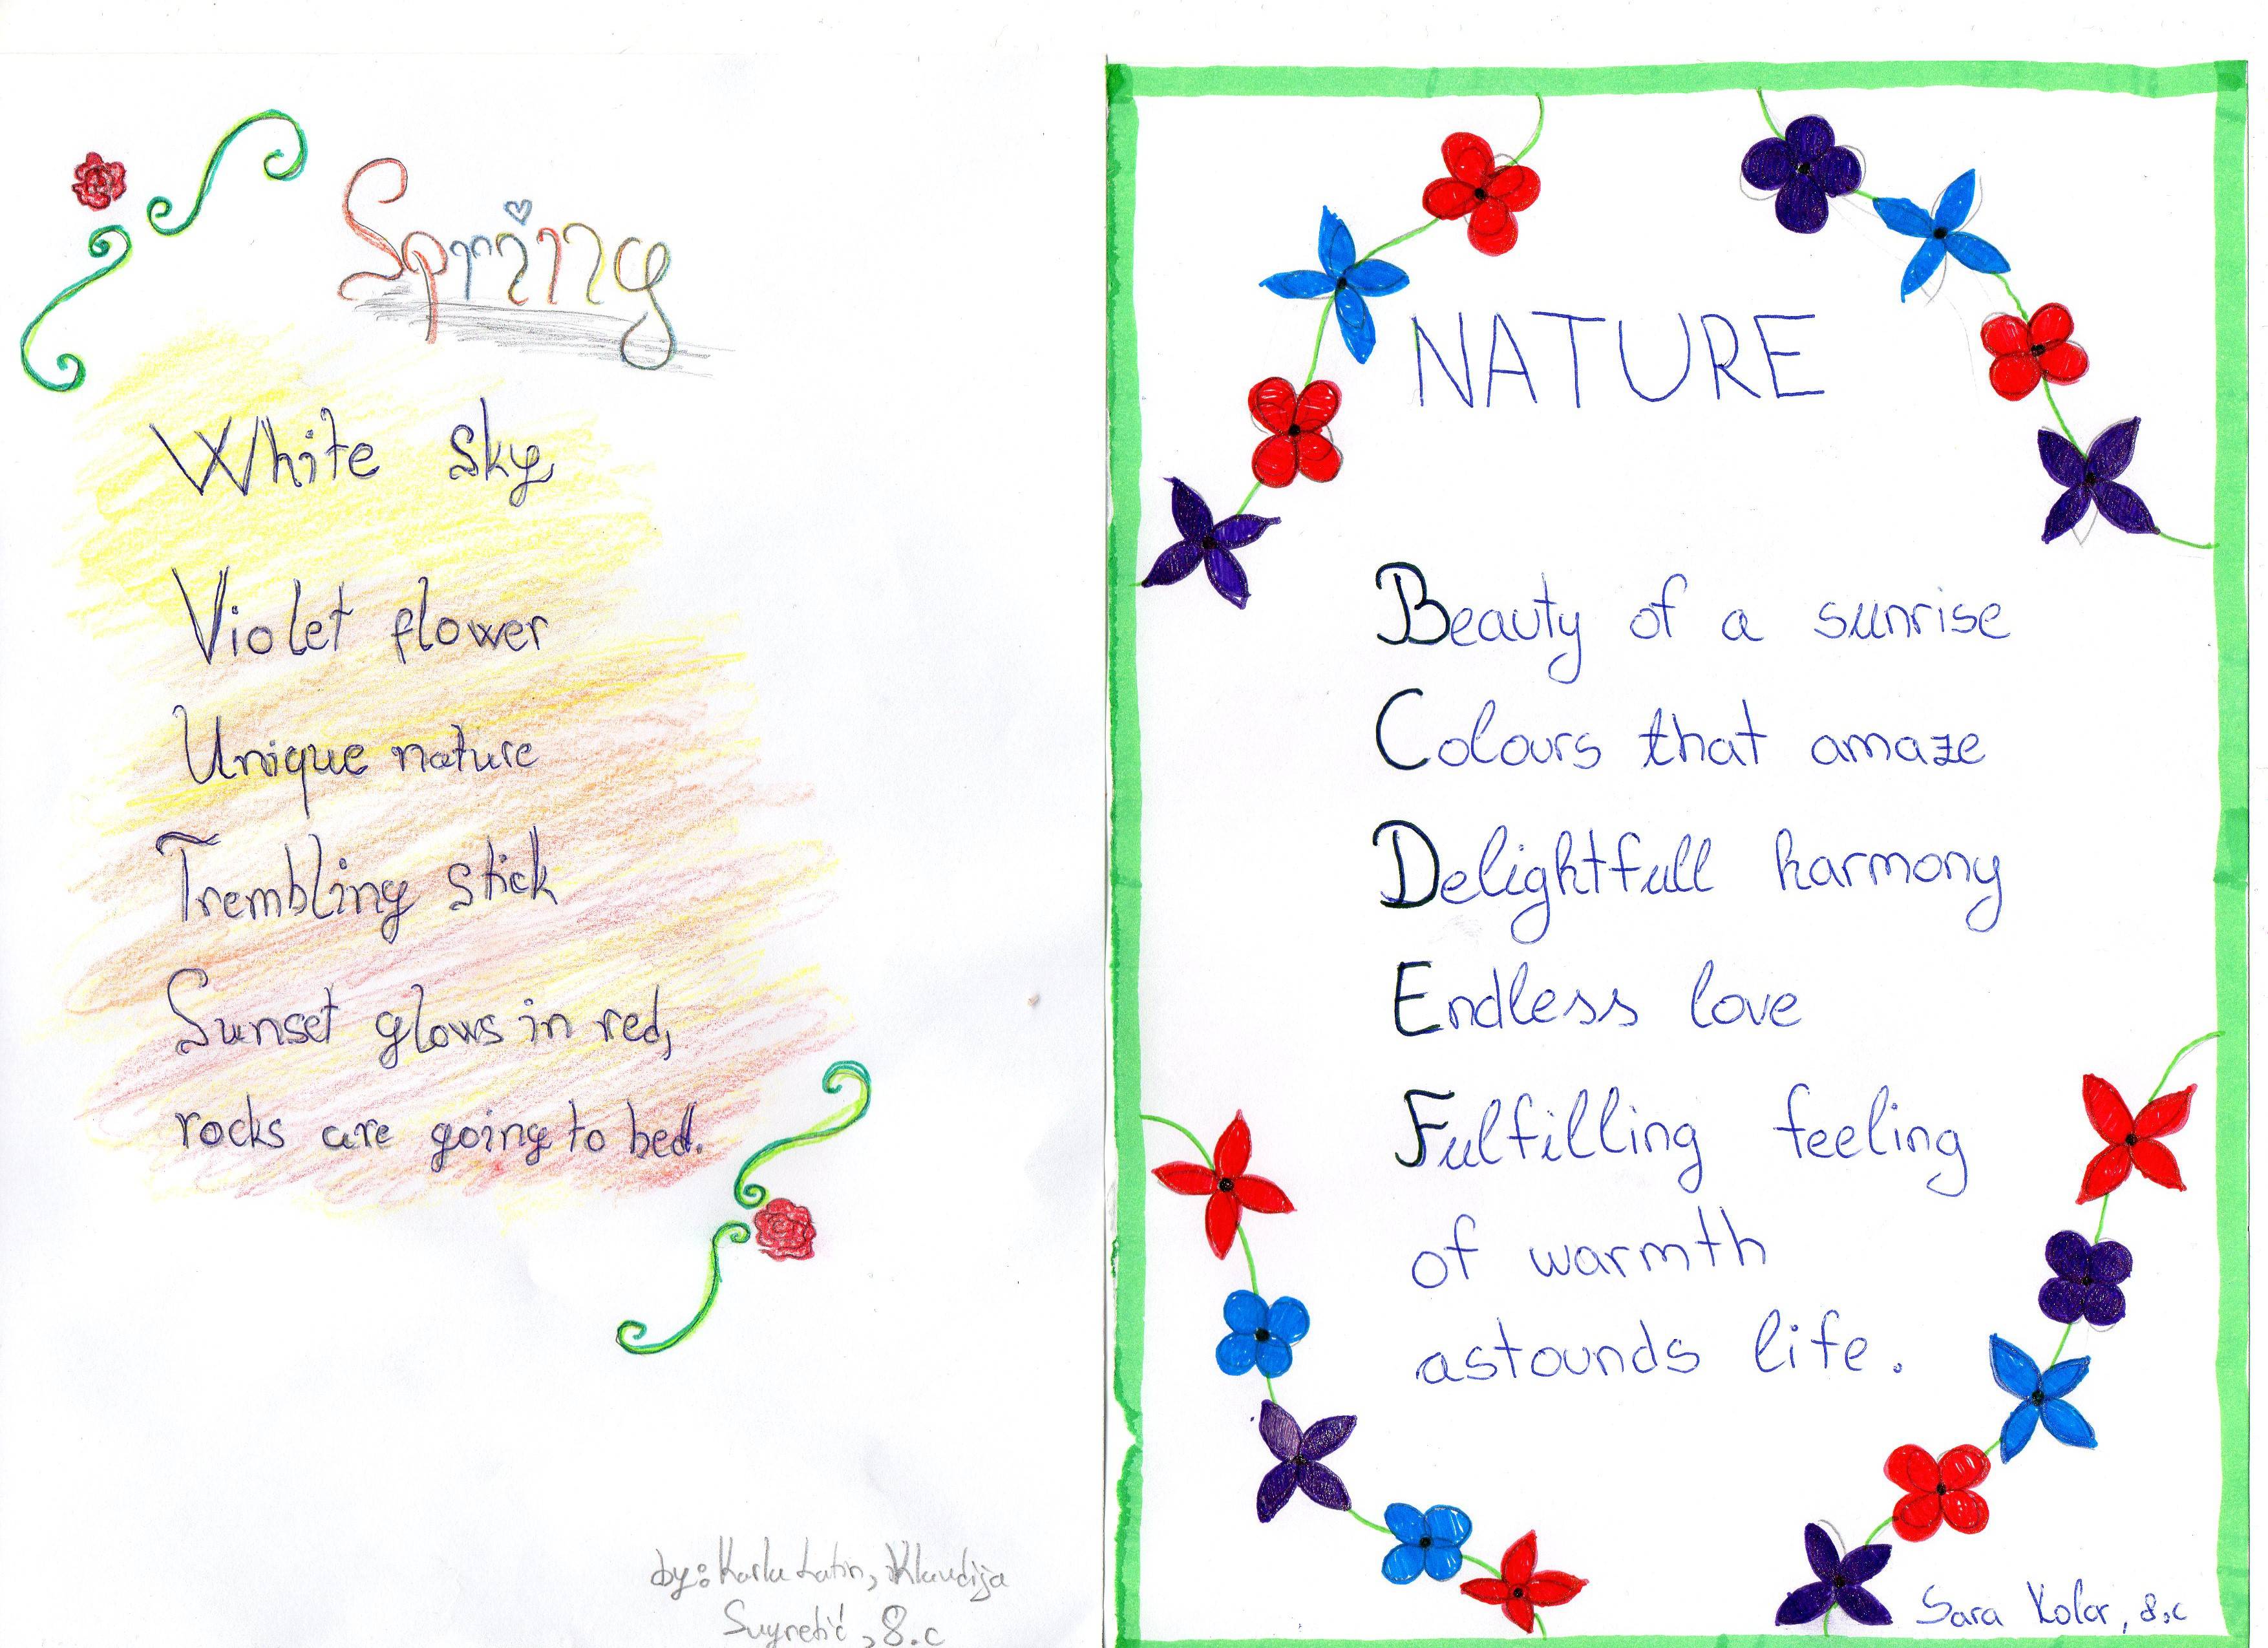 Spring
White sky,
Violet flower
Unique nature
Trembling stick
Sunset glows in red,
rocks are going to bed.
by: Karla Latin, Klaudija
8.c
NATURE
Beauty of a sunrise
Colours that amaze
Delightfull harmony
Endless love
Fulfilling feeling
of warmth
astounds life.
Sara Kolar, 8.c